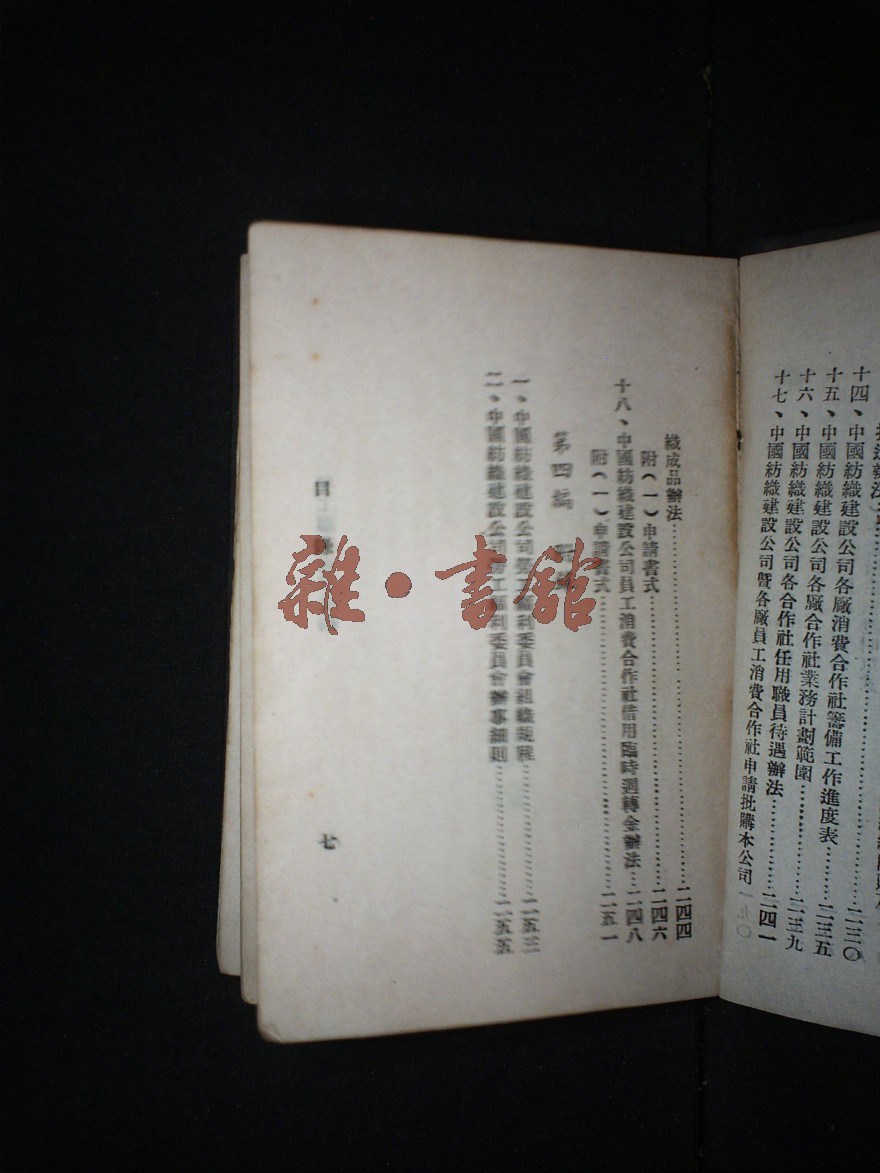 十四、中國紡織建設公司各廠消費合作社籌備工作進度表……二三〇
十五、中國紡織建設公司各廠合作社業務計劃範圍……二三五
十六、中國紡織建設公司各合作社任用職員待遇辦法……二三九
十七、中國紡織建設公司暨各廠員工消費合作社申請批購本公司
織成品辦法……二四四
附(一)申請書式……二四六
十八、中國紡織建設公司員工消費合作社借用臨時週轉金辦法……二四八
附(一)申請書式……二五一
第四編
一、中國紡織建設公司福利委員會組織規程……二五三
二、中國紡織建設公司工福利委員會辦事細則……二五五
目
七
雜·書館